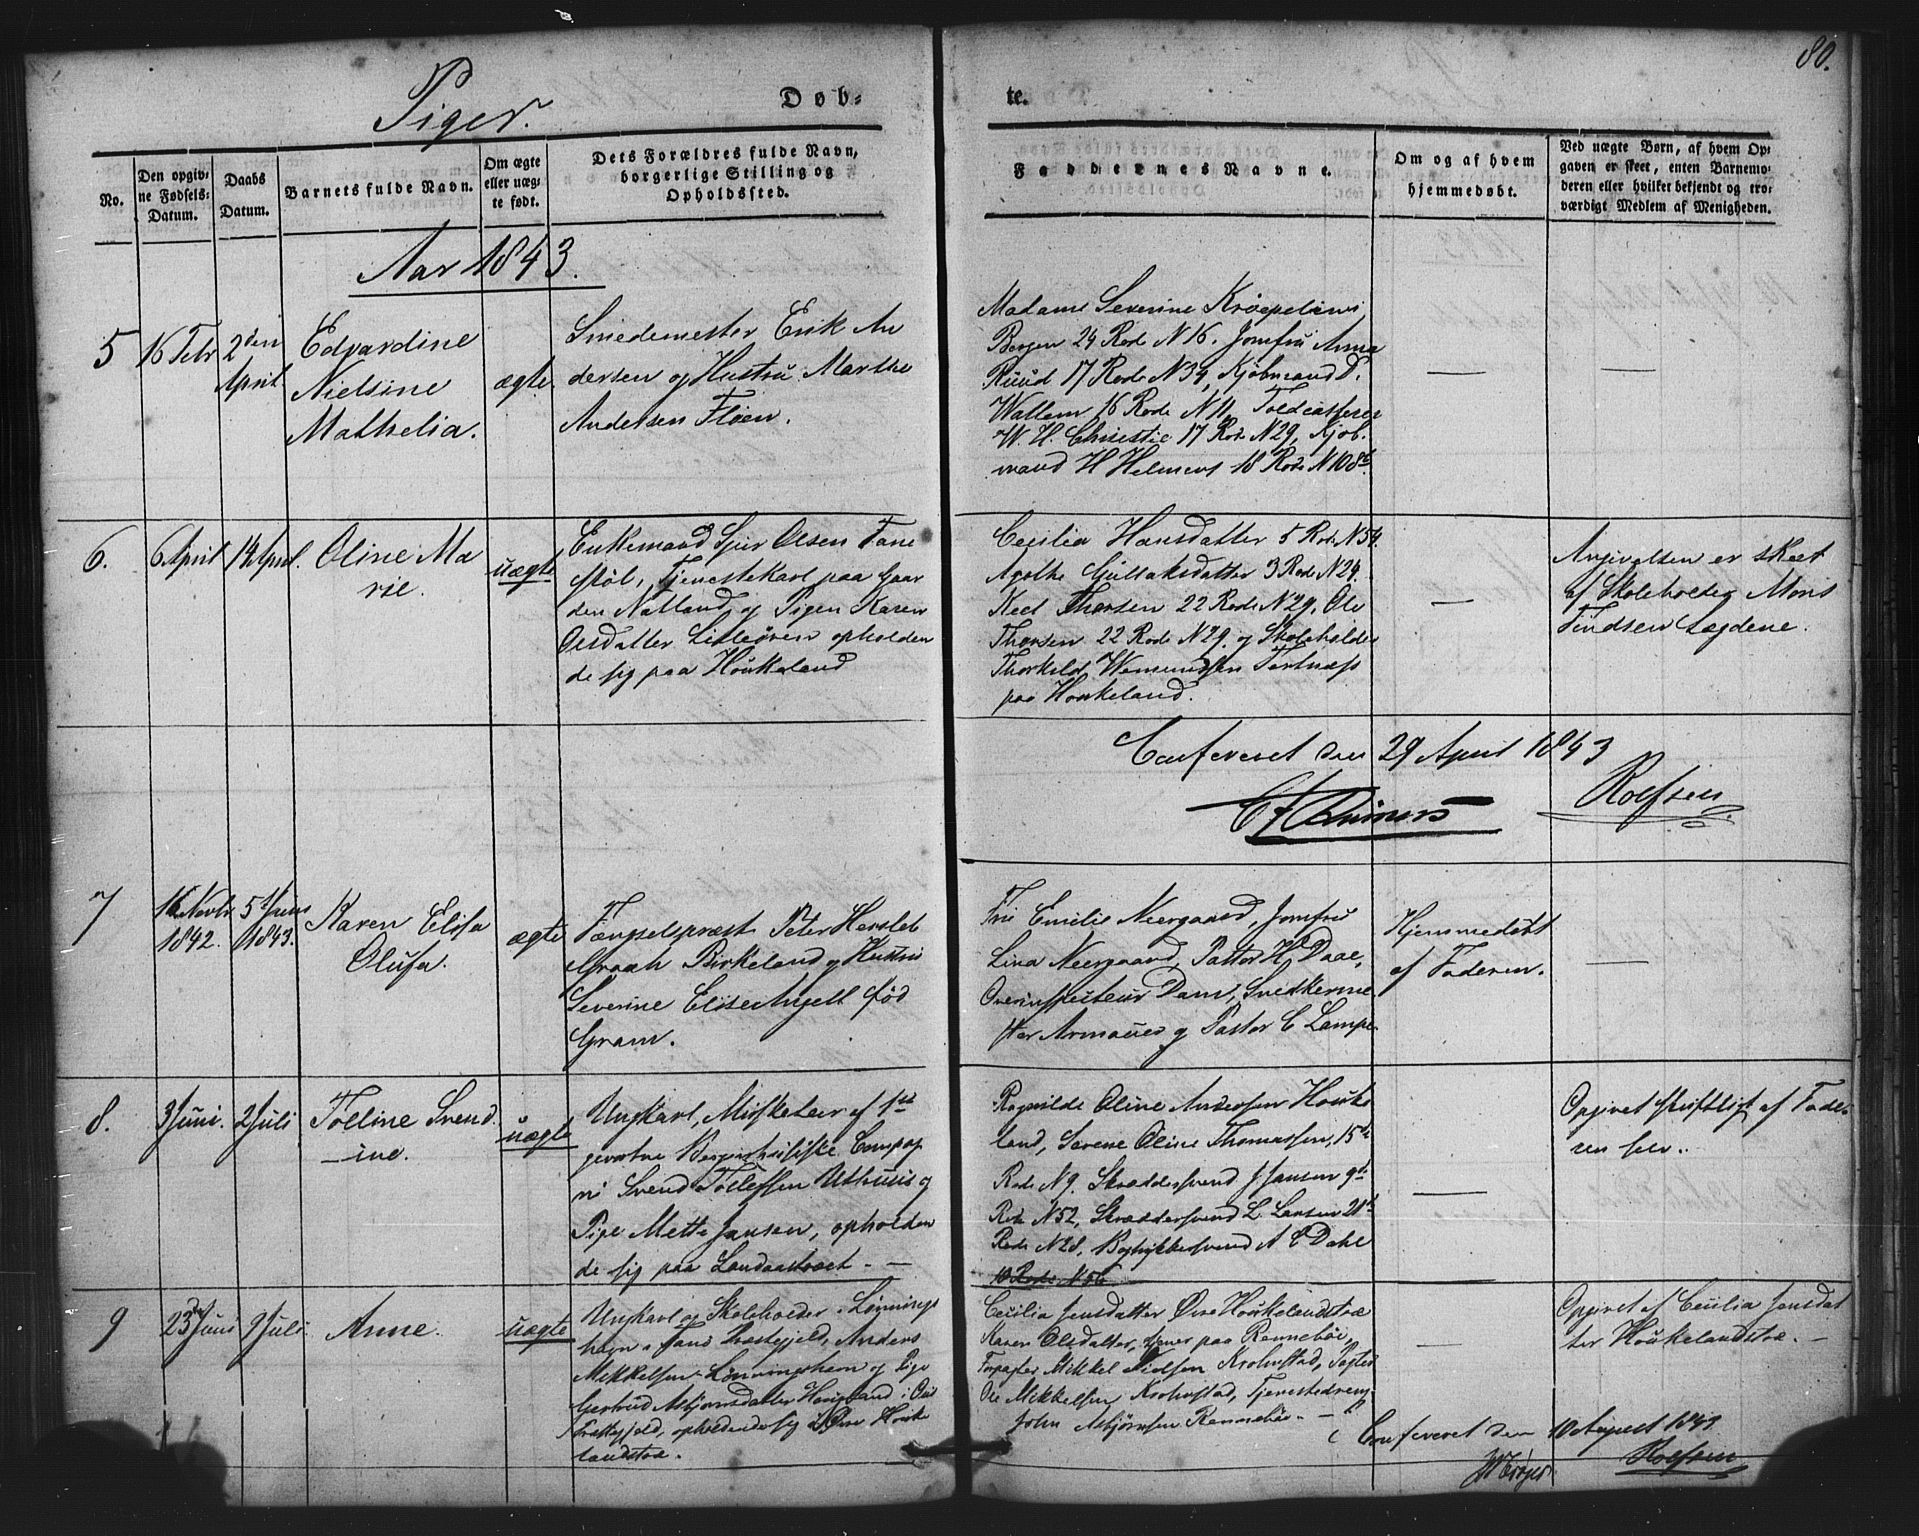 80.
Piger.
Døb-
te.
No.
Den opgiv-
ne Fødsels-
Datum.
Daabs
Datum.
Barnets fulde Navn.
Om ægte
eller uæg-
te født.
Dets Forældres fulde Navn,
borgerlige Stilling og
Opholdssted.
Faddernes Navne.
Om og af hvem
hjemmedøbt.
Ved uægte Børn, af hvem Op-
gaven er skeet, enten Barnemo-
deren eller hvilket bekjendt og tro-
værdigt Medlem af Menigheden.
Aar 1843.
5
16 Febr
2den
April
Edvardine
Nielsine
Mathelia.
ægte
Smedemester Erik An
dersen og Hustru Marthe
Andersen Fløen.
Madame Severine Krøepelien
Bergen 24 Rode N 16. Jomfru Anna
Ruud 17 Rode N 34, Kjøbmand D.
Wallem 16 Rode N 11, Toldcasserer
W. H. Christie 17 Rode N 29, Kjøb-
mand H Helmers 18 Rode N 108
6.
6 April
14 April.
Oline Ma
rie.
uægte
Enkemand Sjur Olsen Fane
støl, Tjenestekarl paa Gaar
den Natland og Pigen Karen
Olsdatter Lilleøren opholden
de sig paa Houkeland
Cecilia Hansdatter 5 Rode N 54.
Agathe Gullaksdatter 3 Rode N 24.
Neel Thorsen 22 Rode N 29, Ole
Thorsen 22 Rode N 29. og Skoleholder
Thorkild Wemundsen Tertnæss
paa Houkeland.
Angivelsen er skeet
af Skoleholder Mons
Findsen Lægdene.
Confereret den 29 April 1843
Rolfsen
7
16 Novbr.
1842.
5t Juni
1843.
Karen Elisa
Olufa.
ægte
Fængselspræst Peter Hersleb
Graah Birkeland og Hustru
Severine Elise Angell fød
Gram.
Fru Emilie Neergaard, Jomfru
Lina Neergaard, Pastor H. Daae,
Overinspecteur Dam, Snedkerme
ster Armauer og Pastor C Lampe
Hjemmedøbt
af Faderen.
8.
3 Juni.
2 Juli
Tolline Svend
-ine.
uægte
Ungkarl, Musketeer af 1ste
gevorbne Bergenhusiske Compag
ni Svend Tollefsen Uthuus og
Pige Mette Jansen, opholden
de sig paa Landaastræet. -
Ragnilde Oline Andersen Houke
land, Serene Oline Thomassen, 15de
Rode N 9. Skræddersvend J Jansen 9de
Rode N 52, Skræddersvend L. Larsen 21de
Rode N 28, Bogtrykkersvend A C Dahl
10 Rode N 56
Opgivet skriftligt af Fade-
ren selv.
9
23de Juni
9 Juli.
Anne.
uægte
Ungkarl og Skoleholder i Lønnings
havn Anders
Mikkelsen Lønningshavn og Pige
Gertrud Asbjørnsdatter i
opholdende sig i Øvre Houke
landstræ.
Cecilia Jensdatter Øvre Houkelandstræ
Karen Olsdatter, paa Rennebøe,
Forpagter Mikkel Nielsen Krohnstad,
Ole Mikkelsen Krohnstad, Tjenestedreng
John Asbjørnsen Rennebøe. -
Opgivet af Cecilia Jensdat
ter Houkelandstræ. -
Confereret den 10 August
Rolfsen